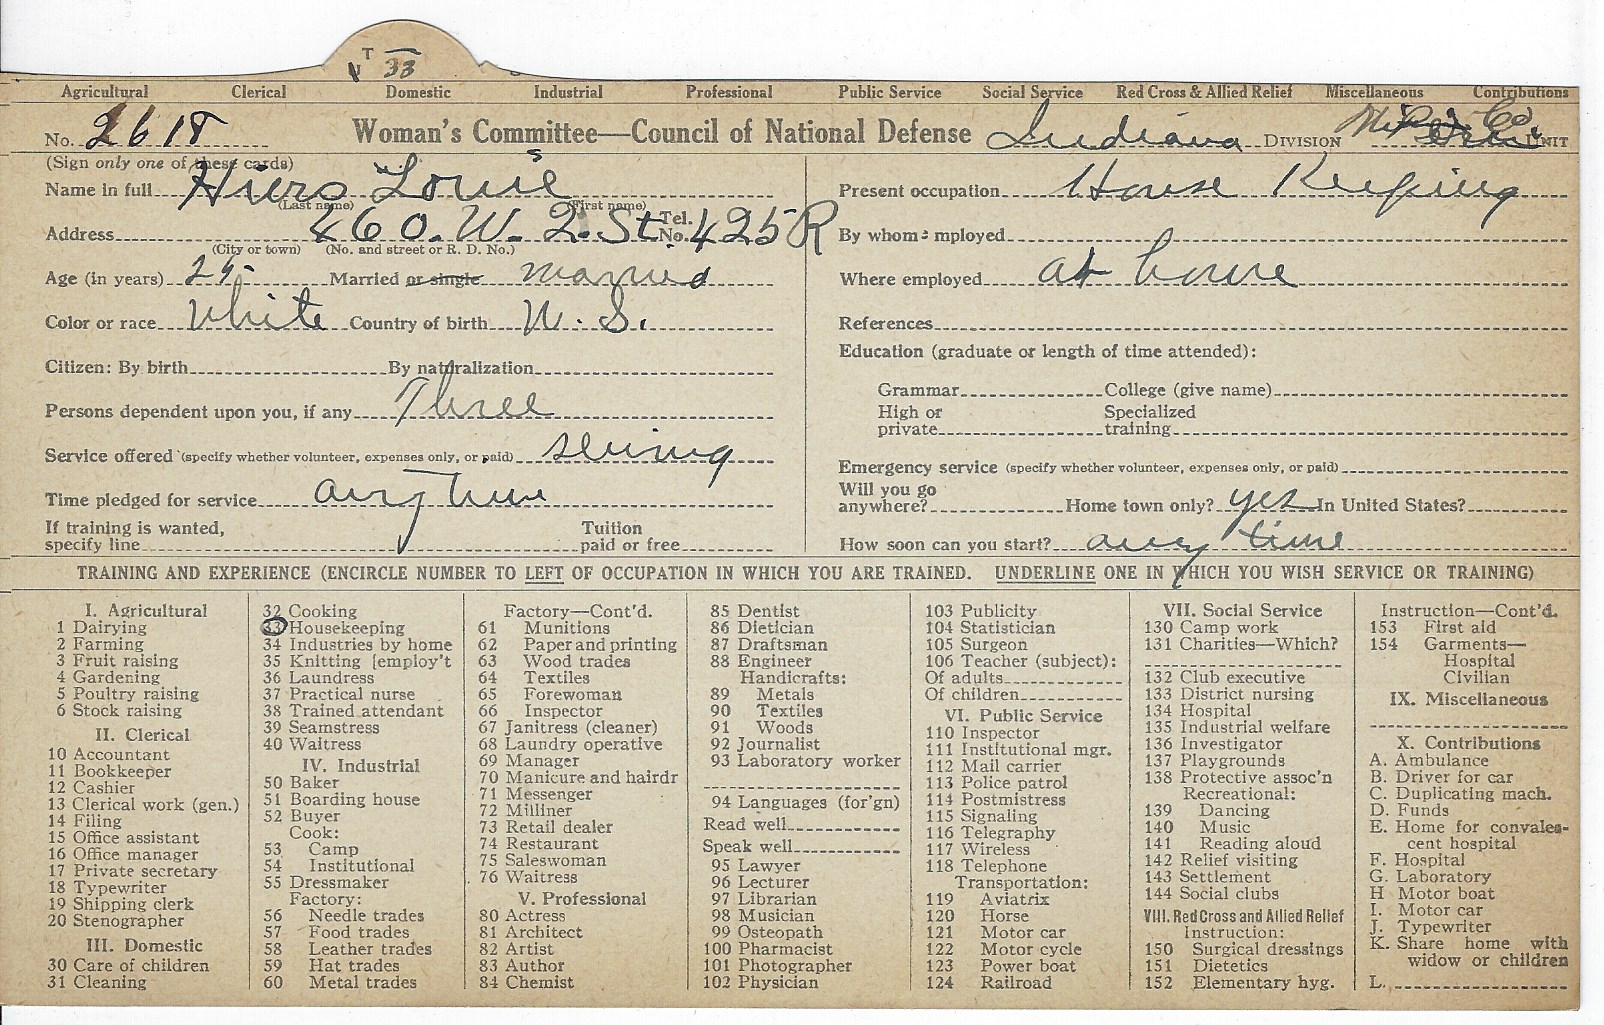 T 33
Agricultural Clerical Domestic Industrial Professional Public Service Social Service Red Cross & Allied Relief Miscellaneous Contributions
No. 2618 Woman's Committee—Council of National Defense Indiana DIVISION UNIT
(Sign only one of these cards)
Name in full Hiers Louie
(Last name) (First name)
Address 460. W. 2. St. Tel. No. 425R
(City or town) (No. and street or R. D. No.)
Age (in years) 25 Married or single married
Color or race White Country of birth U. S.
Citizen: By birth By naturalization
Persons dependent upon you, if any Three
Service offered (specify whether volunteer, expenses only, or paid) sewing
Time pledged for service any time
If training is wanted, specify line Tuition paid or free
Present occupation House Keeping
By whom employed
Where employed at home
References
Education (graduate or length of time attended):
Grammar College (give name)
High or private Specialized training
Emergency service (specify whether volunteer, expenses only, or paid)
Will you go anywhere? Home town only? yes In United States?
How soon can you start? any time
TRAINING AND EXPERIENCE (ENCIRCLE NUMBER TO LEFT OF OCCUPATION IN WHICH YOU ARE TRAINED. UNDERLINE ONE IN WHICH YOU WISH SERVICE OR TRAINING)
I. Agricultural
1 Dairying
2 Farming
3 Fruit raising
4 Gardening
5 Poultry raising
6 Stock raising
II. Clerical
10 Accountant
11 Bookkeeper
12 Cashier
13 Clerical work (gen.)
14 Filing
15 Office assistant
16 Office manager
17 Private secretary
18 Typewriter
19 Shipping clerk
20 Stenographer
III. Domestic
30 Care of children
31 Cleaning
32 Cooking
33 Housekeeping
34 Industries by home
35 Knitting [employ't
36 Laundress
37 Practical nurse
38 Trained attendant
39 Seamstress
40 Waitress
IV. Industrial
50 Baker
51 Boarding house
52 Buyer
Cook:
53 Camp
54 Institutional
55 Dressmaker
Factory:
56 Needle trades
57 Food trades
58 Leather trades
59 Hat trades
60 Metal trades
Factory—Cont'd.
61 Munitions
62 Paper and printing
63 Wood trades
64 Textiles
65 Forewoman
66 Inspector
67 Janitress (cleaner)
68 Laundry operative
69 Manager
70 Manicure and hairdr
71 Messenger
72 Milliner
73 Retail dealer
74 Restaurant
75 Saleswoman
76 Waitress
V. Professional
80 Actress
81 Architect
82 Artist
83 Author
84 Chemist
85 Dentist
86 Dietician
87 Draftsman
88 Engineer
Handicrafts:
89 Metals
90 Textiles
91 Woods
92 Journalist
93 Laboratory worker
94 Languages (for'gn)
Read well
Speak well
95 Lawyer
96 Lecturer
97 Librarian
98 Musician
99 Osteopath
100 Pharmacist
101 Photographer
102 Physician
103 Publicity
104 Statistician
105 Surgeon
106 Teacher (subject):
Of adults
Of children
VI. Public Service
110 Inspector
111 Institutional mgr.
112 Mail carrier
113 Police patrol
114 Postmistress
115 Signaling
116 Telegraphy
117 Wireless
118 Telephone
Transportation:
119 Aviatrix
120 Horse
121 Motor car
122 Motor cycle
123 Power boat
124 Railroad
VII. Social Service
130 Camp work
131 Charities—Which?
132 Club executive
133 District nursing
134 Hospital
135 Industrial welfare
136 Investigator
137 Playgrounds
138 Protective assoc'n
Recreational:
139 Dancing
140 Music
141 Reading aloud
142 Relief visiting
143 Settlement
144 Social clubs
VIII. Red Cross and Allied Relief
Instruction:
150 Surgical dressings
151 Dietetics
152 Elementary hyg.
Instruction—Cont'd.
153 First aid
154 Garments—
Hospital
Civilian
IX. Miscellaneous
X. Contributions
A. Ambulance
B. Driver for car
C. Duplicating mach.
D. Funds
E. Home for convales-
cent hospital
F. Hospital
G. Laboratory
H Motor boat
I. Motor car
J. Typewriter
K. Share home with
widow or children
L.